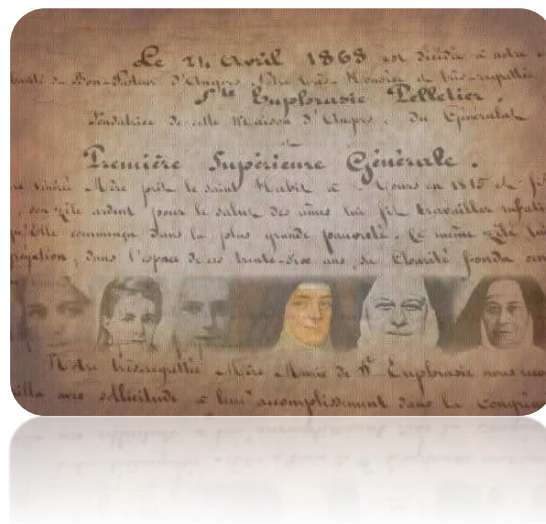 Le 24 Avril 1868 est décédée à notre
du Bon-Pasteur d'Angers, Notre très-Honorée et très-regrettée
Ste Euphrasie Pelletier,
Fondatrice de cette Maison d'Angers, du Généralat
Première Supérieure Générale.
Mère prit le saint Habit à Tours en 1815 et
son zèle ardent pour le salut des âmes lui fit travailler
commença dans la plus grande pauvreté. Ce même zèle
dans l'espace de ces trente-trois ans, sa Charité fonda
Notre très-regrettée Mère Marie de Ste Euphrasie nous
avec sollicitude à leur accomplissement dans la